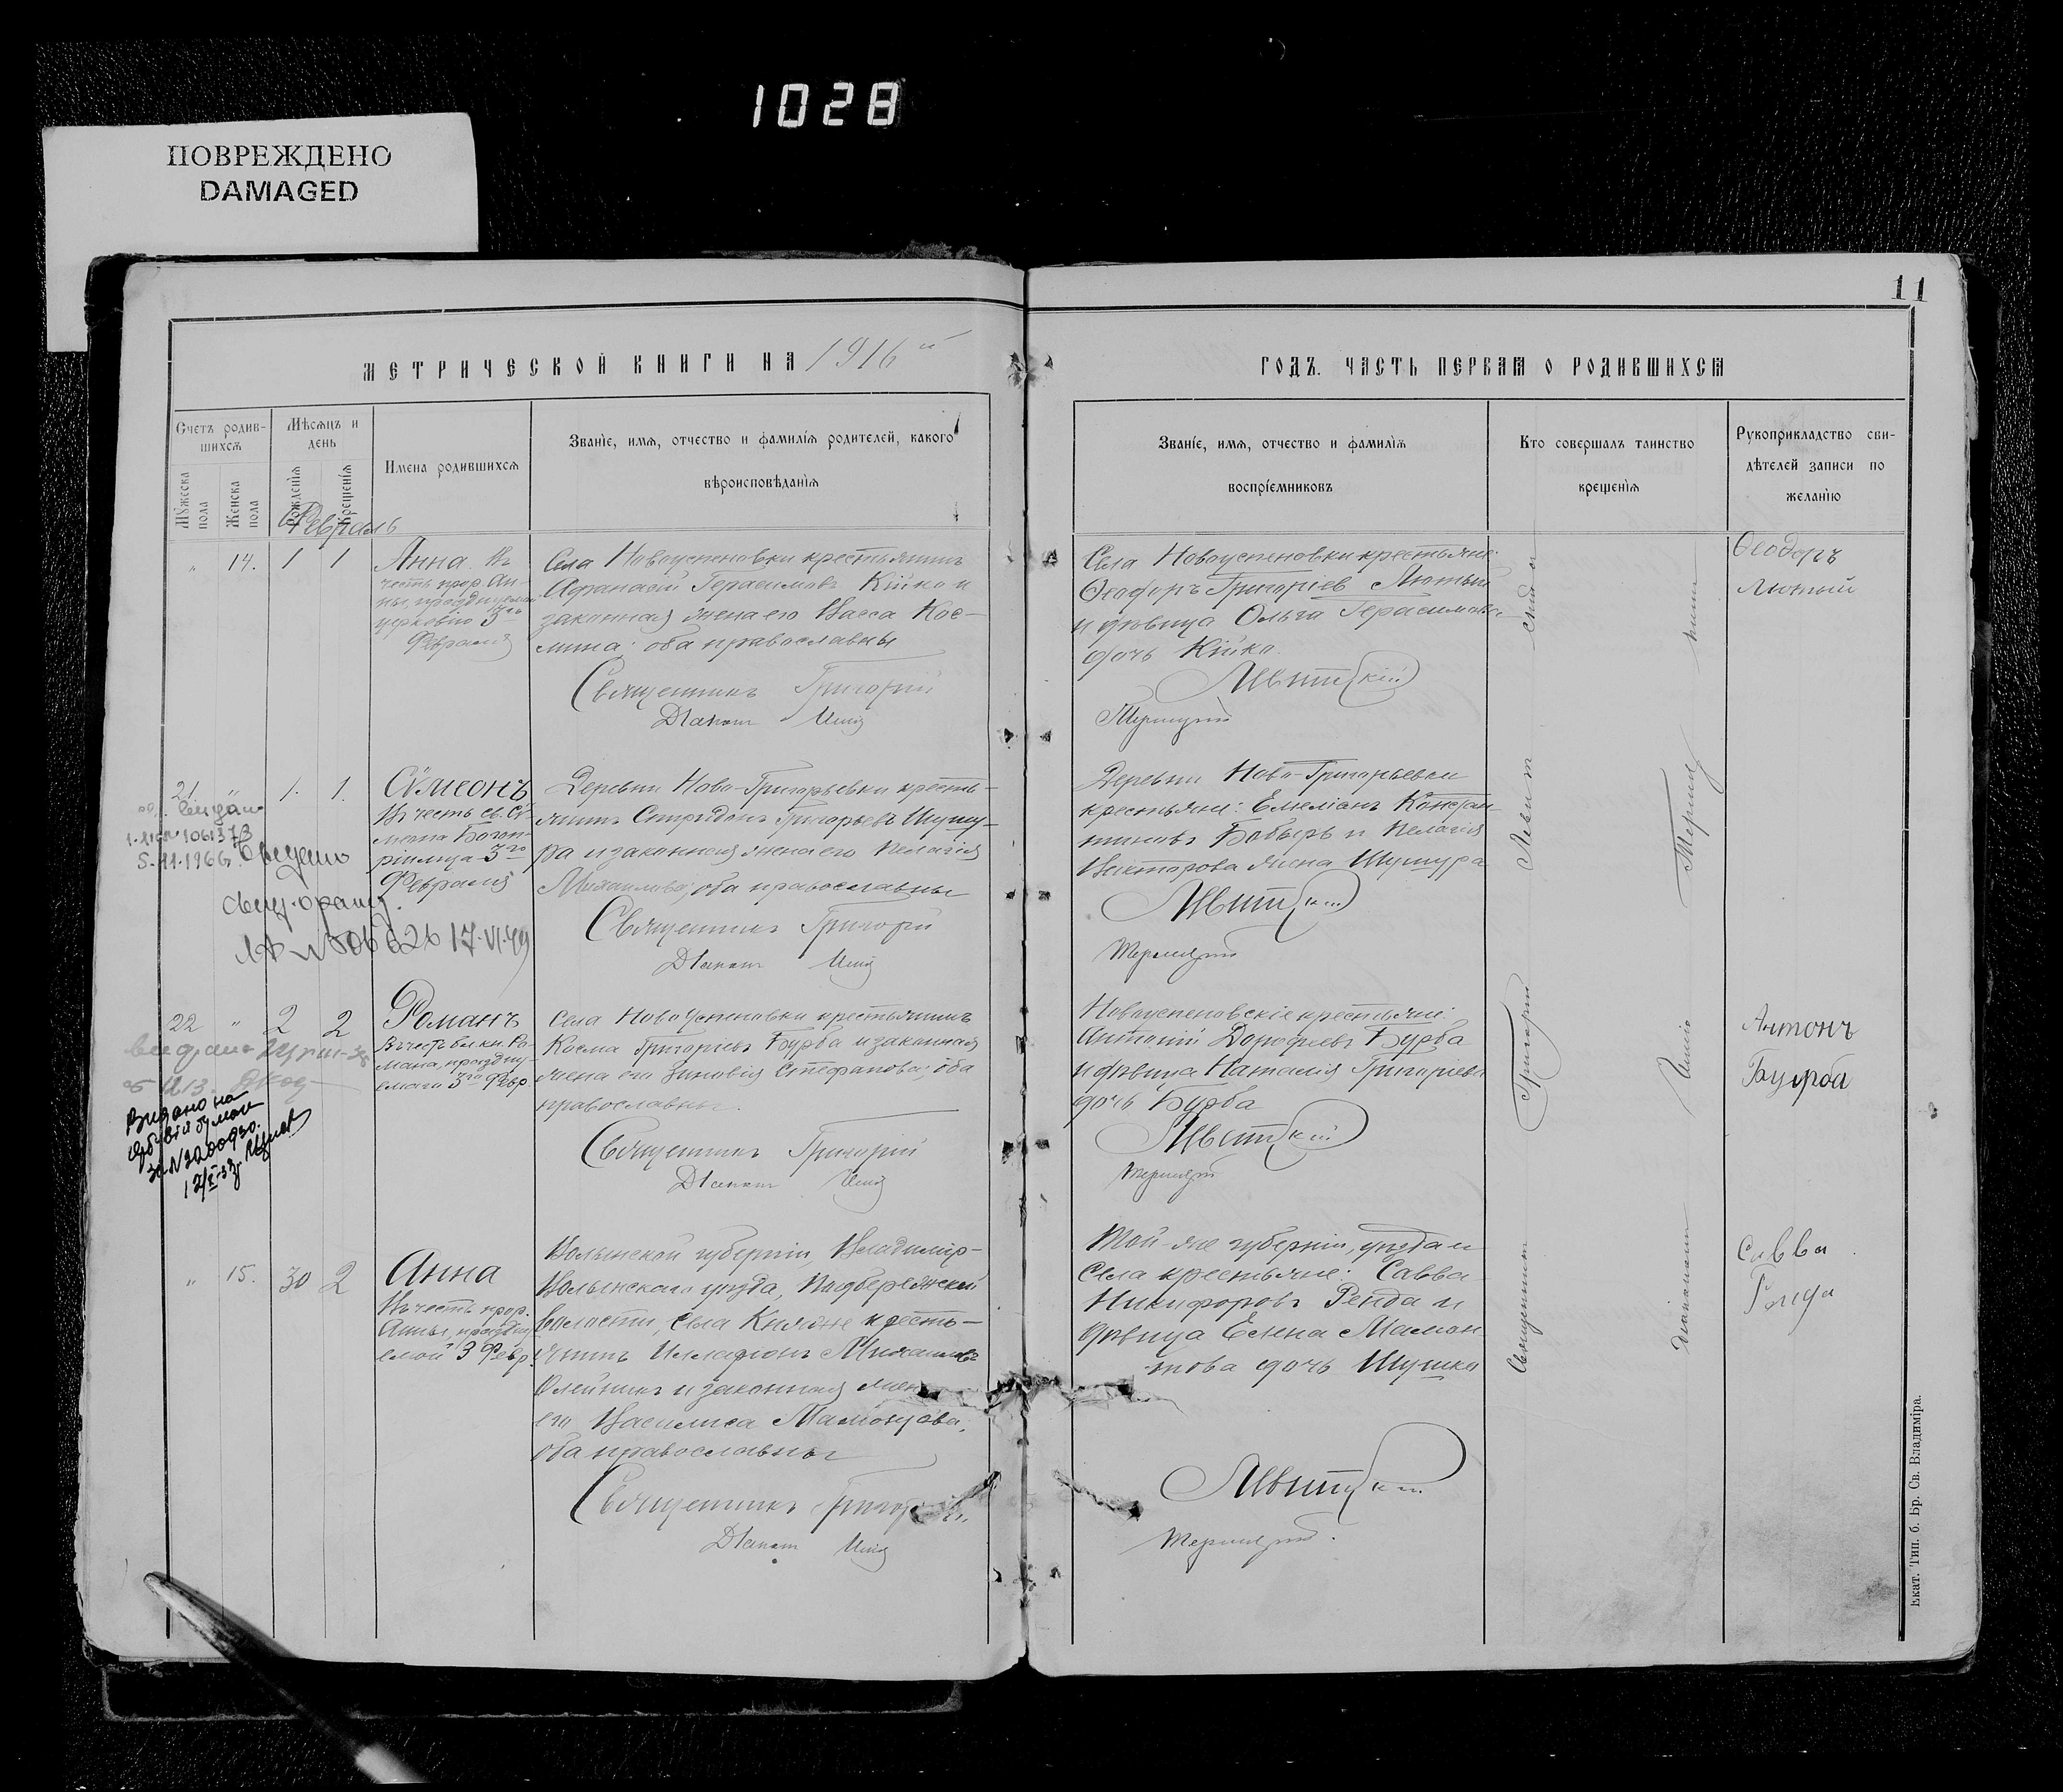 1028
ПОВРЕЖДЕНО
DAMAGED
11
МЕТРИЧЕСКОЙ КНИГИ НА 1916 й
ГОДЪ. ЧАСТЬ ПЕРВАЯ О РОДИВШИХСЯ
Счетъ родив-
шихся
Мужеска пола
Женска пола
Мѣсяцъ и
день
Рожденія
Крещенія
Имена родившихся
Званіе, имя, отчество и фамилія родителей, какого
вѣроисповѣданія
Званіе, имя, отчество и фамилія
воспріемниковъ
Кто совершалъ таинство
крещенія
Рукоприкладство сви-
дѣтелей записи по
желанію
Февраль
" 14. 1 1
Анна Въ
честь прор. Ан-
ны, празднуемой
церковію 3го
Февраля
Села Новоуспеновки крестьянинъ
Афанасій Герасимовъ Кійко и
законная жена его Васса Кос-
мина; оба православны
Священникъ Григорій
Діаконъ
Села Новоуспеновки крестьяне:
Ѳеодоръ Григоріев Лютый
и дѣвица Ольга Герасимова
дочь Кійко.
Ѳеодоръ
Лютый
21 " 1. 1.
Сѵмеонъ
Въ честь св. Сѵ-
меона Богоп-
ріимца 3го
Февраля
Деревни Ново-Григорьевки кресть-
янинъ Спиридонъ Григорьевъ Шушу-
ра и законная жена его Пелагія
Михаилова; оба православны
Священникъ Григорій
Діаконъ
Деревни Ново-Григорьевки
крестьяне: Емеліанъ Констан-
тиновъ Бобырь и Пелагія
Викторова жена Шушура
5.11.1966г.
17.VI.49
22 " 2 2
Романъ
Въ честь бл. кн. Ро-
мана, праздну-
емаго 3го Февр.
Села НовоУспеновки крестьянинъ
Косма Григоріевъ Бурба и законная
жена его Зиновія Стефанова; оба
православны.
Священникъ Григорій
Діаконъ
Новоуспеновскіе крестьяне:
Антоній Дороѳеевъ Бурба
и дѣвица Наталія Григоріева
дочь Бурба
Антонъ
Бурба
" 15. 30 2
Анна
Въ честь прор.
Анны, праздну-
емой 3 Февр.
Волынской губерніи, Владимір-
Волынскаго уѣзда, Подберезской
волости, села Княже кресть-
янинъ Илларіонъ Михаиловъ
Олейникъ и законная жена
его Василиса Мамонтова;
оба православны
Священникъ Григорій
Діаконъ
Той-же губерніи, уѣзда и
села крестьяне: Савва
Никифоровъ Ренда и
дѣвица Елена Мамон-
това дочь Шушка
Савва
Ренда
Священникъ Григорій
Діаконъ
Екат. Тип. б. Бр. Св. Владиміра.